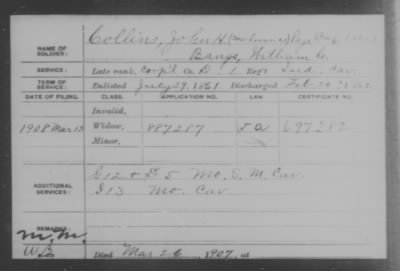 Collins, John H.
NAME OF SOLDIER: Bangs, William C.
SERVICE: Late rank, Corp'l Co. D. 1 Regt. Ind. Cav.
TERM OF SERVICE: Enlisted July 27, 1861 Discharged Feb.
DATE OF FILING. CLASS. APPLICATION NO. LAW. CERTIFICATE NO.
Invalid,
1908 Mar 13 Widow, 887287 697282
Minor,
ADDITIONAL SERVICES: G 12 & D 5 Mo. S. M. Cav.
I 13 Mo. Cav.
REMARKS:
M.M.
W.B. Died Mar 26, 1907, at